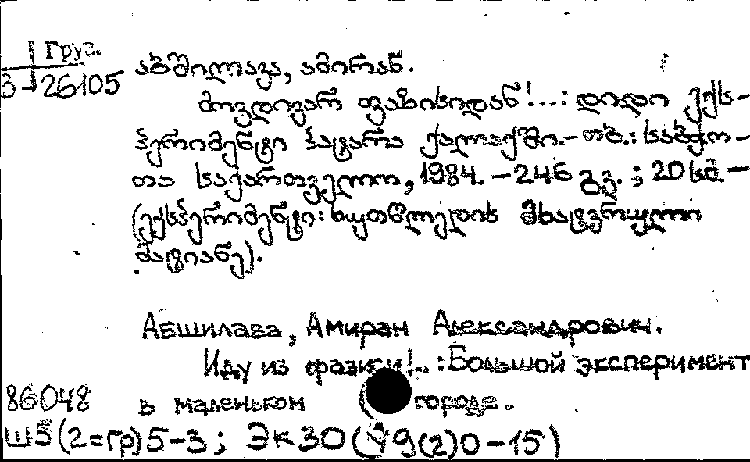 Груз.
3-26105
აბშილავა, ამირან.
მოვდივარ ფაზისიდან!...: დიდი ექს-
პერიმენტი პატარა ქალაქში.- თბ.: საბჭო-
თა საქართველო, 1984. - 246 გვ. ; 20 სმ. -
(ექსპერიმენტი: ხუთწლედის მხატვრული
მატიანე).
Абшилава, Амиран Александрович.
Иду из фазиси!..: Большой эксперимент
в маленьком городе.
86048
Ш5(2=Гр)5-3; ЭкЗО( 9(2)0-15)